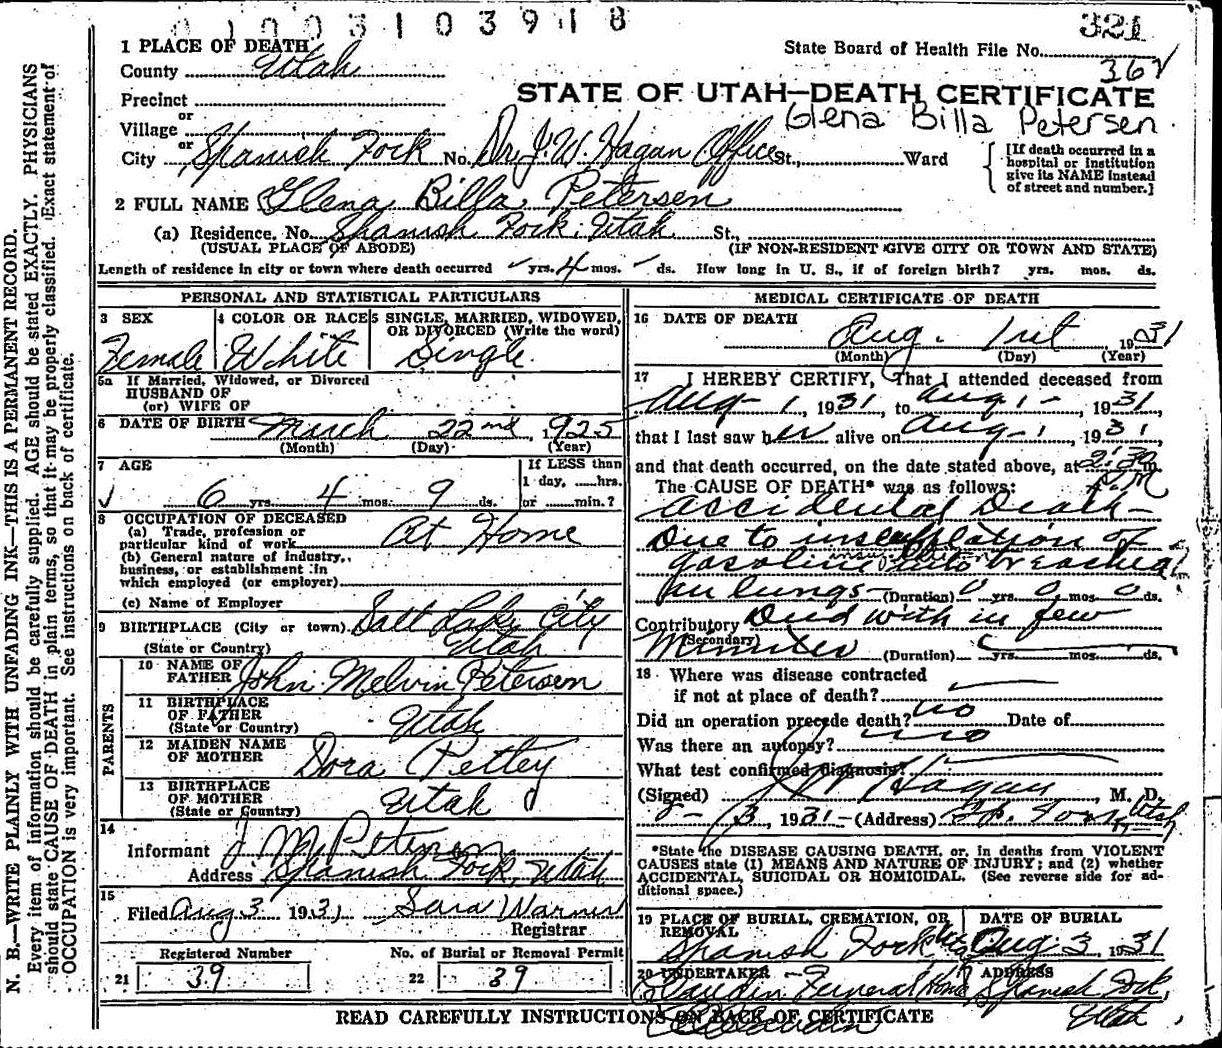 0 1 0 0 3 1 0 3 9 1 8
321
1 PLACE OF DEATH
State Board of Health File No.
County Utah
362
Precinct
STATE OF UTAH—DEATH CERTIFICATE
or
Village
Glena Billa Petersen
or
City Spanish Fork No. Dr. J. W. Hagan Office St., Ward
[If death occurred in a hospital or institution give its NAME instead of street and number.]
2 FULL NAME Glena Billa Petersen
(a) Residence, No. Spanish Fork, Utah St.,
(USUAL PLACE OF ABODE) (IF NON-RESIDENT GIVE CITY OR TOWN AND STATE)
Length of residence in city or town where death occurred yrs. 4 mos. ds. How long in U. S., if of foreign birth? yrs. mos. ds.
PERSONAL AND STATISTICAL PARTICULARS
3 SEX 4 COLOR OR RACE 5 SINGLE, MARRIED, WIDOWED, OR DIVORCED (Write the word)
Female White Single
5a If Married, Widowed, or Divorced
HUSBAND OF
(or) WIFE OF
6 DATE OF BIRTH March 22nd, 1925
(Month) (Day) (Year)
7 AGE
If LESS than
1 day, ......hrs.
6 yrs. 4 mos. 9 ds. or ......min.?
8 OCCUPATION OF DECEASED
(a) Trade, profession or
particular kind of work At Home
(b) General nature of industry,
business, or establishment in
which employed (or employer)
(c) Name of Employer
9 BIRTHPLACE (City or town) Salt Lake City
(State or Country) Utah
PARENTS
10 NAME OF
FATHER John Melvin Petersen
11 BIRTHPLACE
OF FATHER
(State or Country) Utah
12 MAIDEN NAME
OF MOTHER Dora Pettey
13 BIRTHPLACE
OF MOTHER
(State or Country) Utah
14
Informant J M Petersen
Address Spanish Fork, Utah
15
Filed Aug 3 1931 Sara Warner
Registrar
Registered Number No. of Burial or Removal Permit
21 39 22 39
MEDICAL CERTIFICATE OF DEATH
16 DATE OF DEATH
Aug. 1st 1931
(Month) (Day) (Year)
17 I HEREBY CERTIFY, That I attended deceased from
Aug 1, 1931, to Aug 1, 1931
that I last saw her alive on Aug 1, 1931,
and that death occurred, on the date stated above, at 2:30 m.
P.M
The CAUSE OF DEATH* was as follows:
Accidental Death
Due to insufflation of
gasoline into
in lungs (Duration) 0 yrs. 0 mos. 0 ds.
Contributory Died with in few
(Secondary)
Minutes (Duration) yrs. mos. ds.
18 Where was disease contracted
if not at place of death?
Did an operation precede death? no Date of
Was there an autopsy? no
What test confirmed diagnosis?
(Signed) J W Hagan, M. D.
8-3, 1931 (Address) Sp. Fork Utah
*State the DISEASE CAUSING DEATH, or, in deaths from VIOLENT
CAUSES state (1) MEANS AND NATURE OF INJURY; and (2) whether
ACCIDENTAL, SUICIDAL OR HOMICIDAL. (See reverse side for ad-
ditional space.)
19 PLACE OF BURIAL, CREMATION, OR REMOVAL DATE OF BURIAL
Spanish Fork Aug 3 1931
20 UNDERTAKER ADDRESS
Funeral Home Spanish Fork,
Utah
READ CAREFULLY INSTRUCTIONS ON BACK OF CERTIFICATE
N. B.—WRITE PLAINLY WITH UNFADING INK—THIS IS A PERMANENT RECORD.
Every item of information should be carefully supplied. AGE should be stated EXACTLY. PHYSICIANS
should state CAUSE OF DEATH in plain terms, so that it may be properly classified. Exact statement of
OCCUPATION is very important. See instructions on back of certificate.